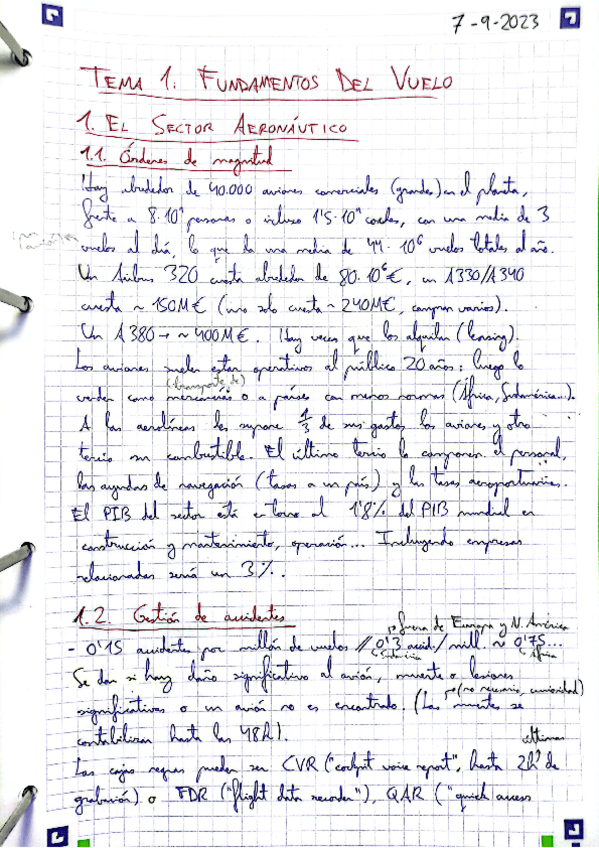 7-9-2023
TEMA 1: FUNDAMENTOS DEL VUELO
1. EL SECTOR AERONÁUTICO
1.1. Órdenes de magnitud
Hay alrededor de 40.000 aviones comerciales (grandes) en el planeta,
frente a 8·10⁹ personas o incluso 1'5·10⁹ coches, con una media de 3
vuelos al día, lo que da una media de 44·10⁶ vuelos totales al año.
Un Airbus 320 cuesta alrededor de 80·10⁶€, un A330/A340
cuesta ~ 150M€ (uno solo cuesta ~ 240M€, compran varios).
Un A380 → ~ 400M€. Hay veces que los alquilan (leasing).
Los aviones suelen estar operativos al público 20 años; luego lo
(transporte de)
venden como mercancías o a países con menos normas (África, Sudamérica...).
A las aerolíneas les supone 1/3 de sus gastos los aviones y otro
tercio su combustible. El último tercio lo componen el personal,
las ayudas de navegación (tasas a un país) y las tasas aeroportuarias.
El PIB del sector está en torno al 1'8% del PIB mundial en
construcción y mantenimiento, operación... Incluyendo empresas
relacionadas sería un 3%.
1.2. Gestión de accidentes
fuera de Europa y N. América
- 0'15 accidentes por millón de vuelos // 0'3 accid./mill. ~ 0'75...
Sudamérica África
Se dan si hay daño significativo al avión, muerte o lesiones
(no necesario, curiosidad)
significativas o un avión no es encontrado. (Las muertes se
contabilizan hasta las 48h).
últimas
Las cajas negras pueden ser CVR ("cockpit voice report", hasta 2h de
grabación) o FDR ("flight data recorder"), QAR ("quick access